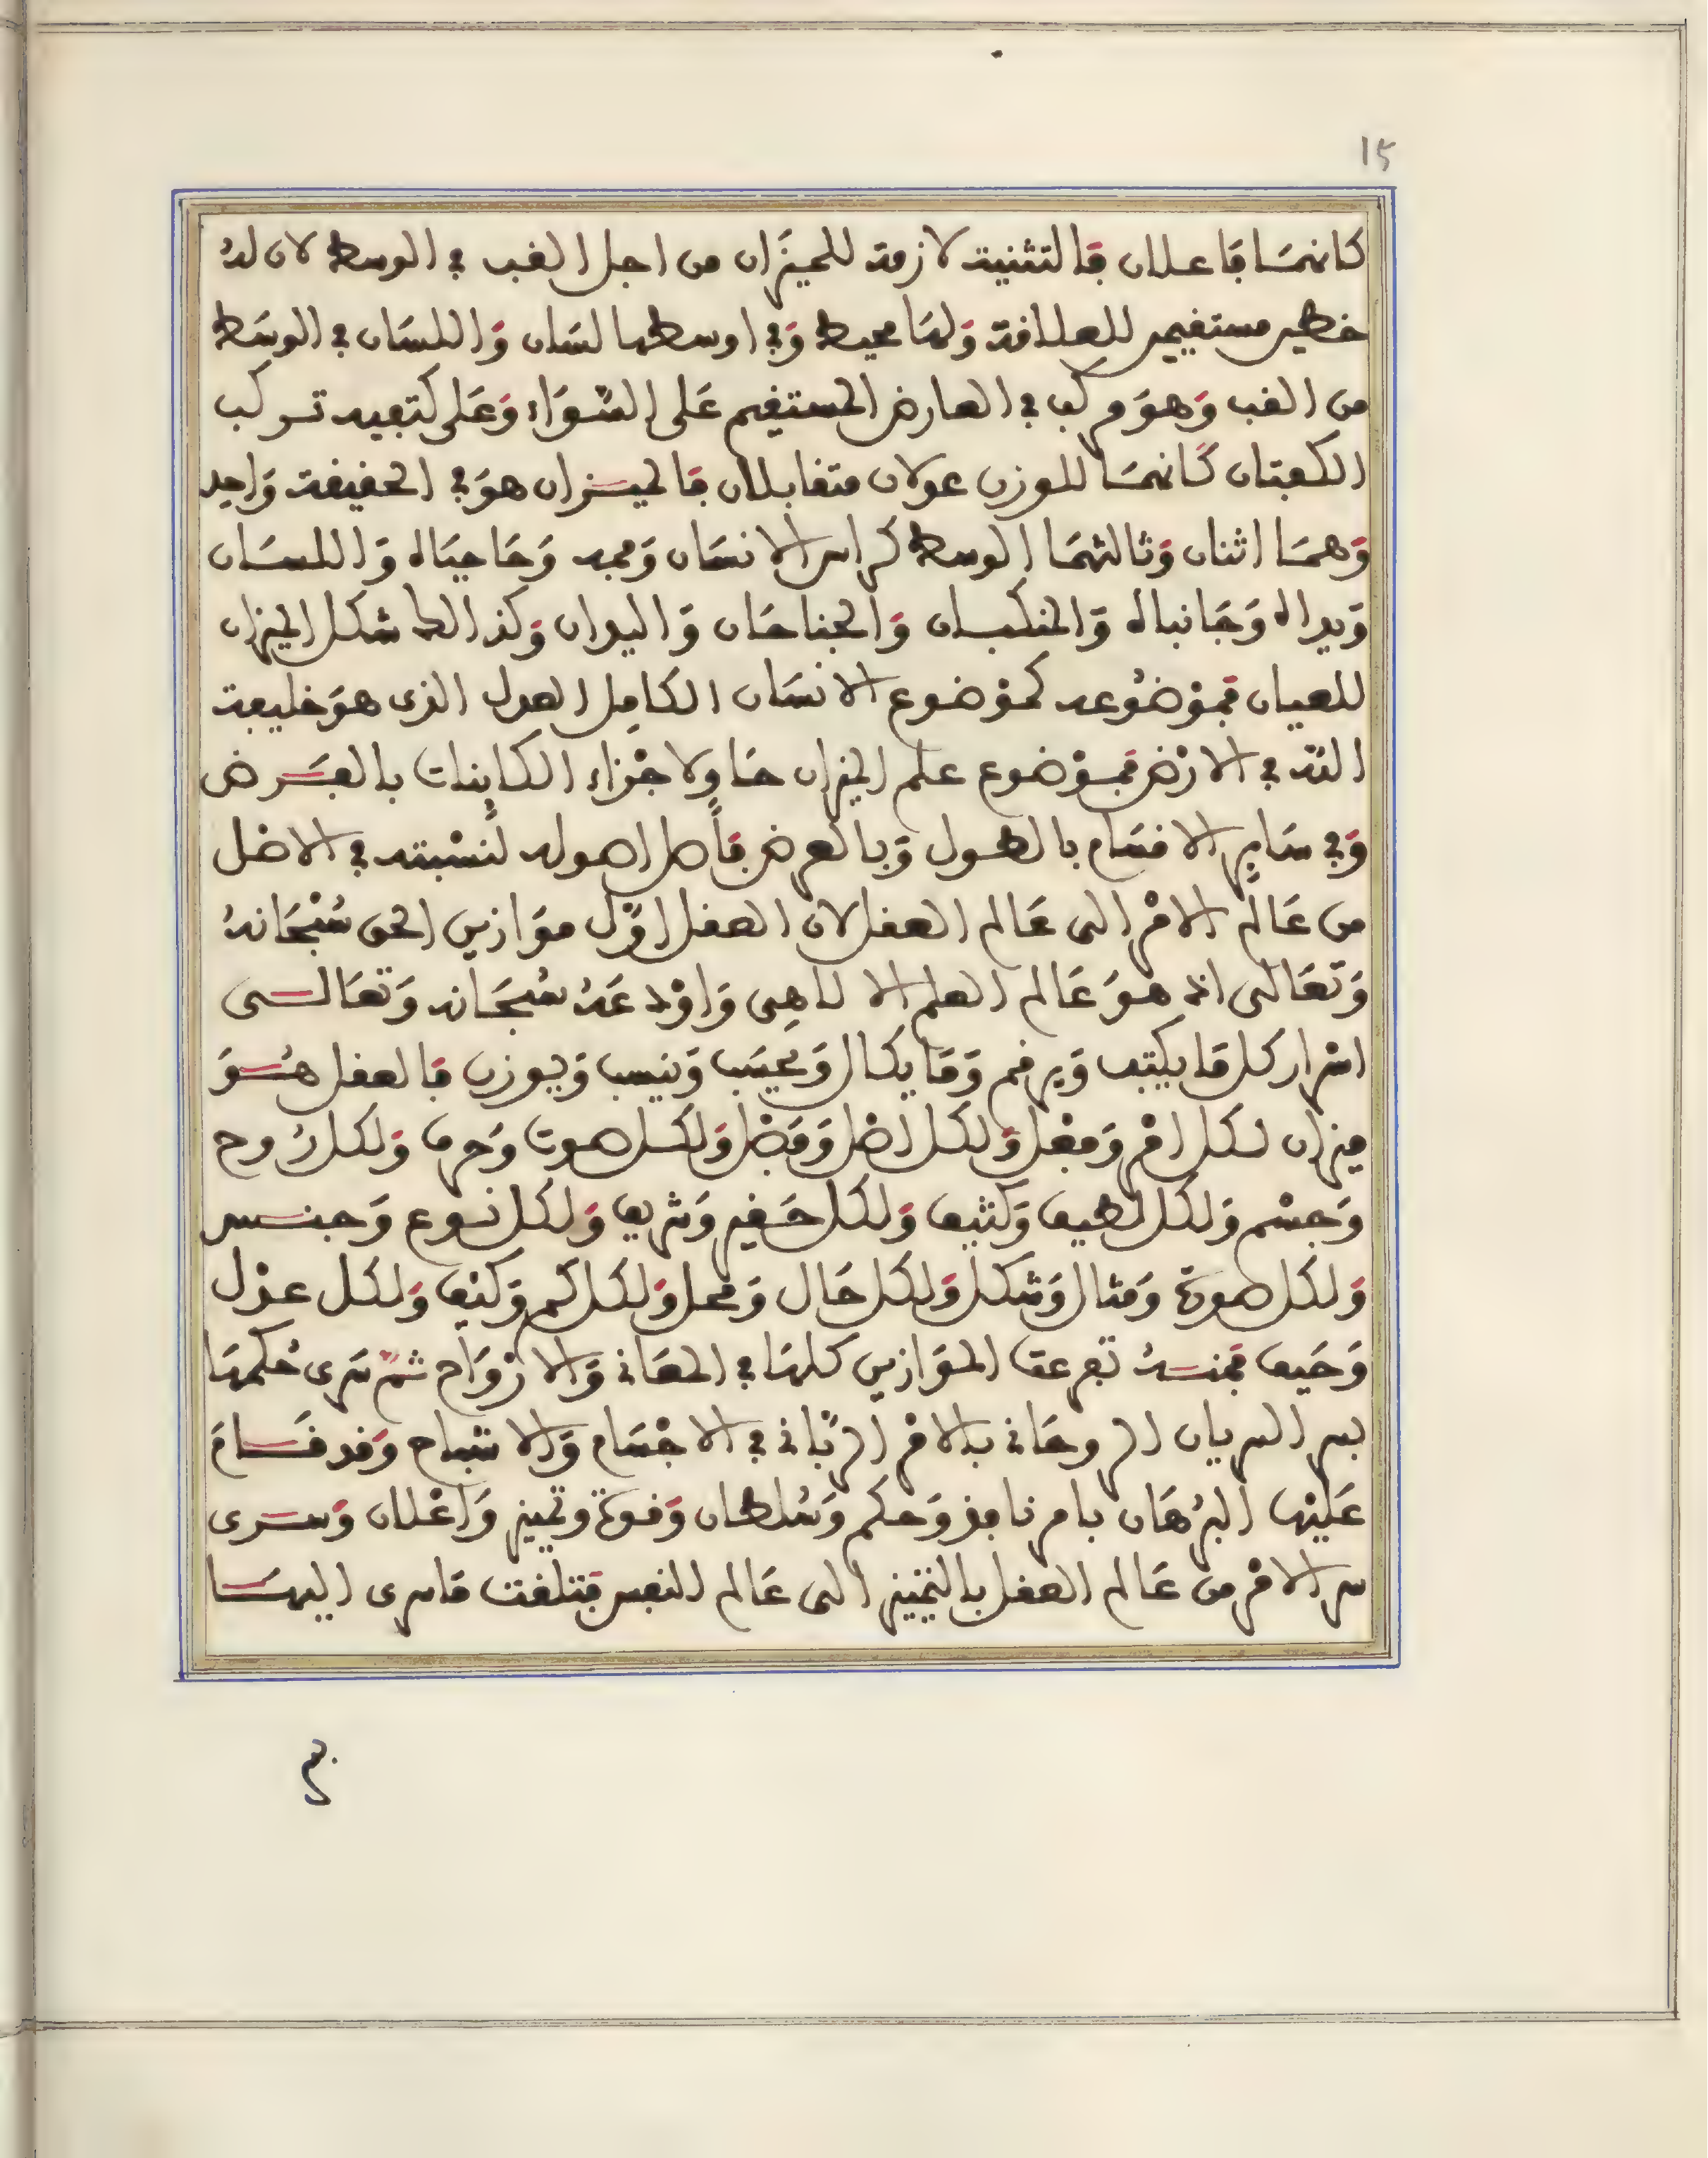 15
كانهمَا فَاعلان فَالتثنية لازمة للميزَان من اجل القب في الوسط لان لهُ
خطين مستقيمين للعلاقة وَلهَا محيط وَفي اوسطها لسَان وَاللسَان في الوسَط
من القب وَهوَ مركب في العارض المستقيم عَلى السّوَاء وَعَلى كتفيه تركب
الكفتان كَانهمَا للوزن عدلان متقابلان فَالميزان هوَ في الحقيقة وَاحِد
وَهمَا اثنان وَثالثهمَا الوسط كراس الانسَان وَفمه وَحَاجبَاه وَاللسَان
وَيداه وَجَانباه وَالمنكبان وَالجناحَان وَاليدان وَكذالك شكل الميزان
للعيان فَموْضُوعه كموْضوع الانسَان الكامِل العدل الذى هوَ خليفة
اللّه في الارْض فَموْضوع علم الميزان حَاو لاجْزاء الكاينات بالعَرض
وَفي سَاير الاقسَام بالطول وَبالعرض فَاصل اصوله لنسْبته في الاصْل
من عَالم الامْر الى عَالم العقل لان العقل اوّل موَازين الحق سُبْحَانهُ
وَتعَالى اذ هوَ عَالم العلم الالاهِى وَاوْدعَهُ سُبحَانه وَتعَالى
اسْرار كل مَا يكتب وَيرقم وَمَا يكال وَيحسَب وَينسب وَيوزن فَالعقل هُوَ
ميزان لكل امْر وَفعْل وَلكل اصْل وَفصْل وَلكل صوت وَحرف وَلكل رُوح
وَجسْم وَلكل لطيف وَكثيف وَلكل حَقير وَشريف وَلكل نوع وَجنس
وَلكل صورة وَمثال وَشكل وَلكل حَال وَمحل وَلكل كم وَكيْف وَلكل عدْل
وَحَيف فَمنهُ تفرعت الموَازين كلهَا في المعَاني وَالارْوَاح ثمّ سَرى حُكمهَا
بسر السريان الروحَاني بالامْر الربّاني في الاجْسَام وَالاشباح وَقد قَامَ
عَليْها البرْهَان بامر نافِذ وَحكم وَسُلطان وَقوة وتمييز وَاعْلان وَسرى
سر الامْر من عَالم العقل بالتمْييز الى عَالم النفس فَتلقت مَا سرى اليهَا